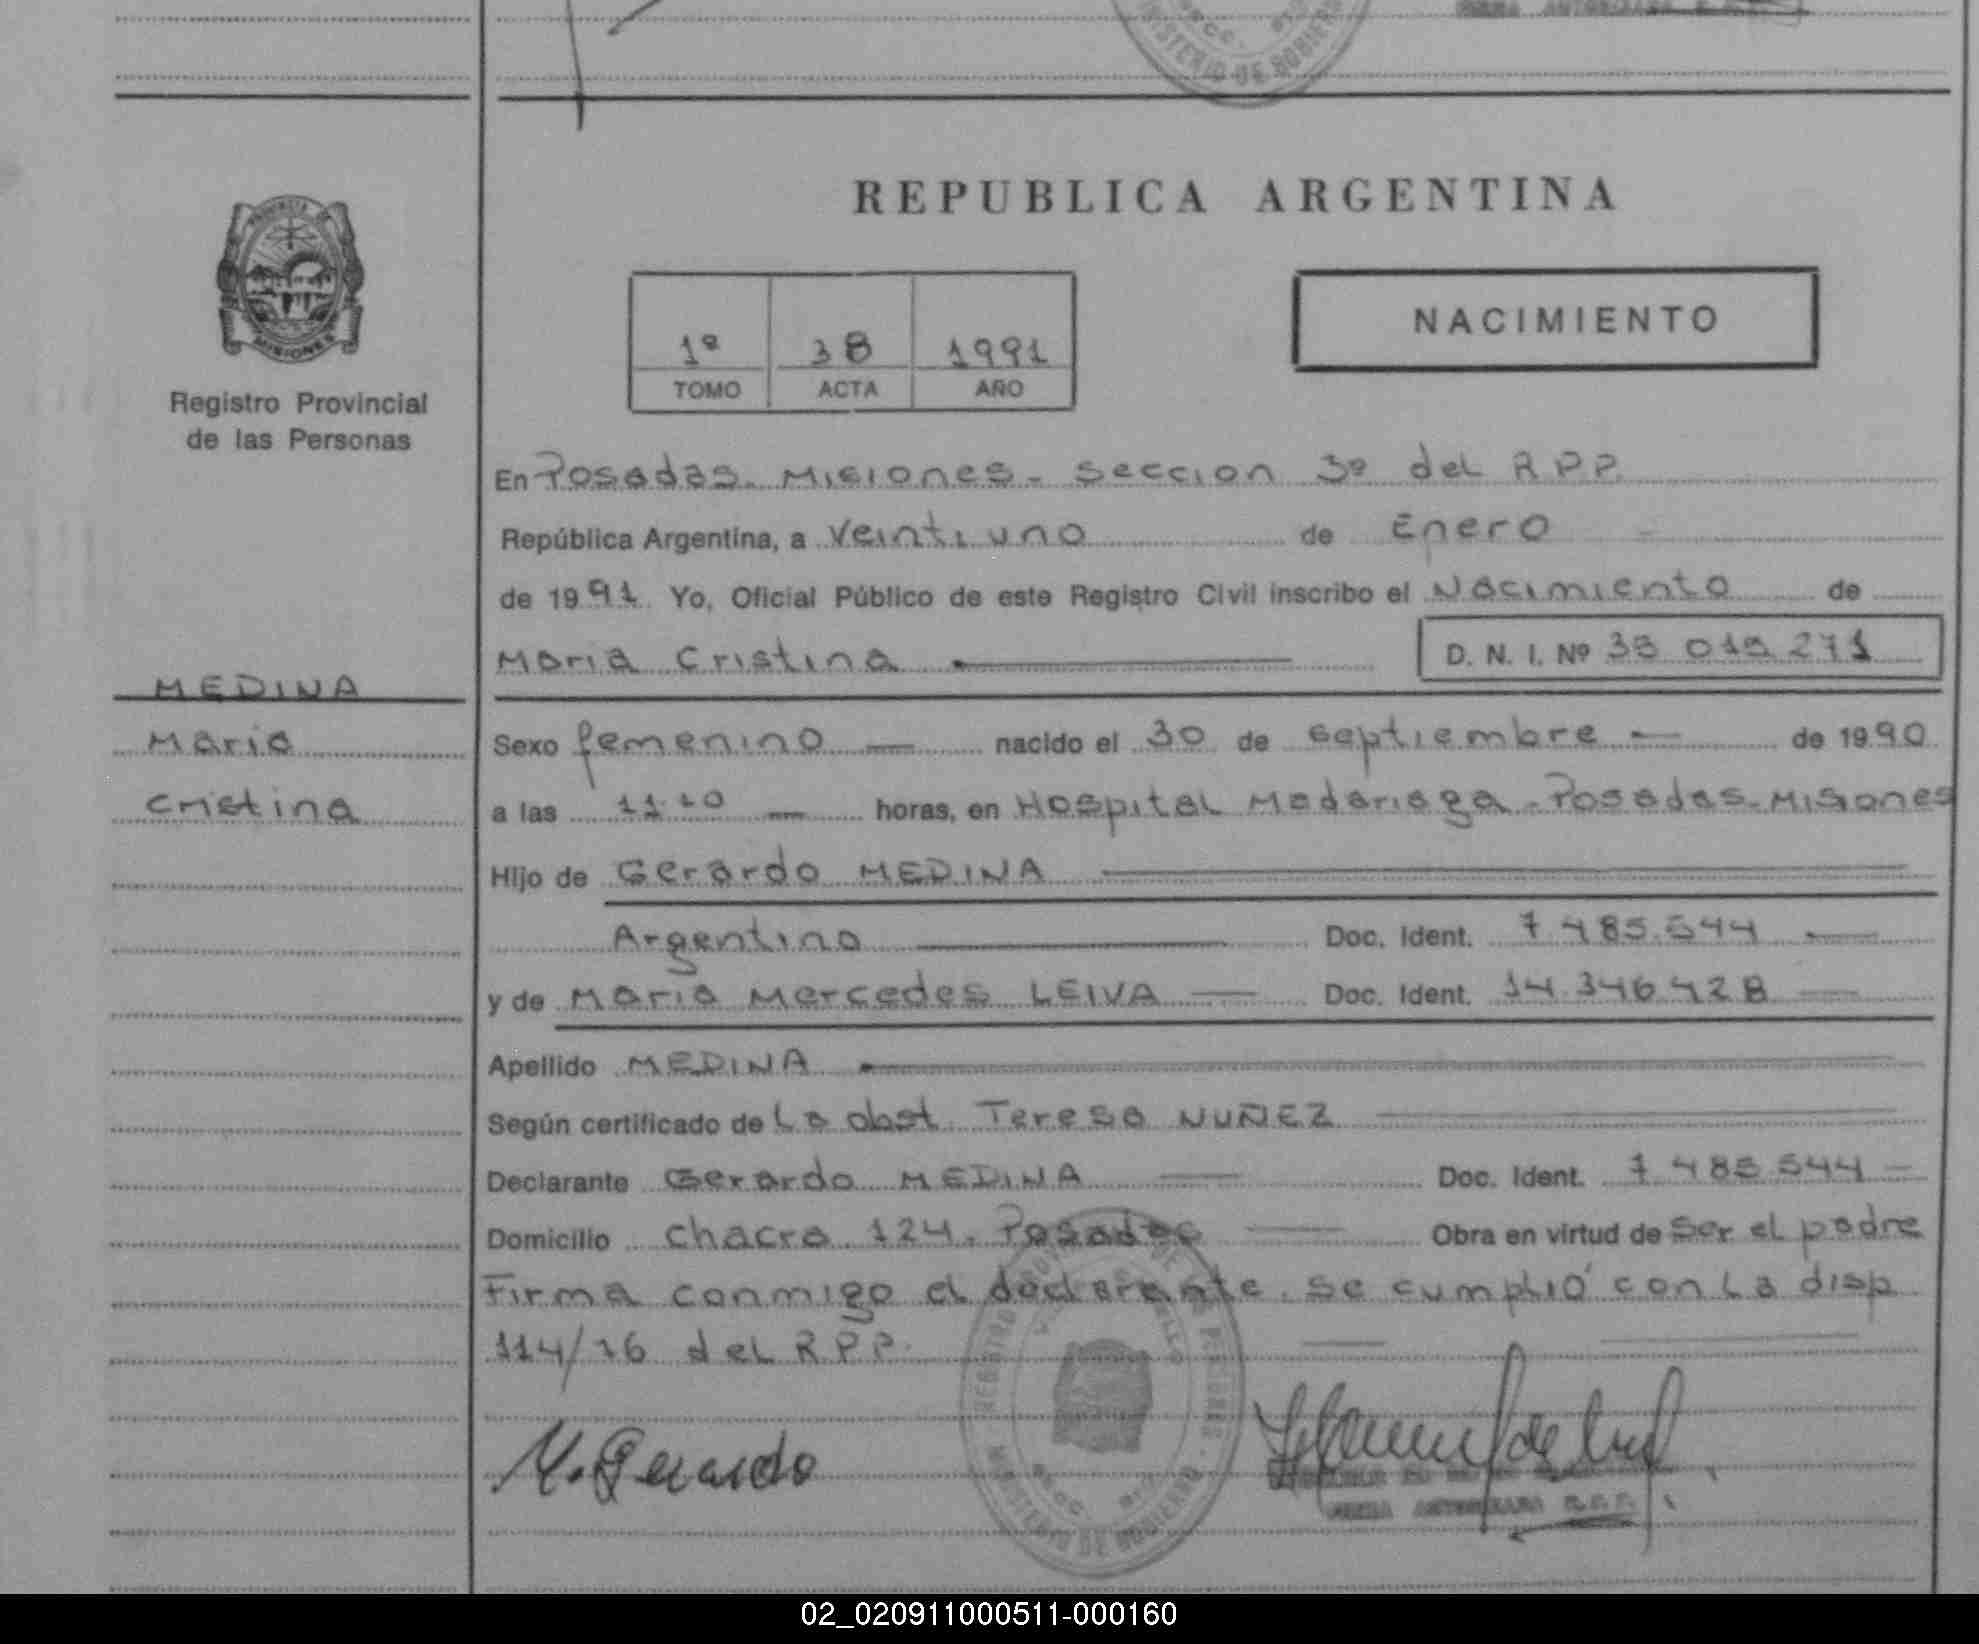 MINISTERIO DE GOBIERNO
REPUBLICA ARGENTINA
PROVINCIA DE
MISIONES
NACIMIENTO
1º 38 1991
TOMO ACTA AÑO
Registro Provincial
de las Personas
En Posadas. Misiones - seccion 3º del R.P.P.
República Argentina, a Veintiuno de Enero
de 1991. Yo, Oficial Público de este Registro Civil inscribo el Nacimiento de
Maria Cristina D. N. I. Nº 35 019 271
MEDINA
Maria
Cristina
Sexo femenino nacido el 30 de septiembre de 1990
a las 11:10 horas, en Hospital Madariaga - Posadas - Misiones
Hijo de Gerardo MEDINA
Argentino Doc. Ident. 7.485.544
y de Maria Mercedes LEIVA Doc. Ident. 14.346.428
Apellido MEDINA
Según certificado de La obst. Teresa NUÑEZ
Declarante Gerardo MEDINA Doc. Ident. 7.485.544
Domicilio chacra 124. Posadas Obra en virtud de ser el padre
Firma conmigo el declarante. se cumplió con la disp.
114/76 del R.P.P.
M. Gerardo
MINISTERIO DE GOBIERNO
02_020911000511-000160